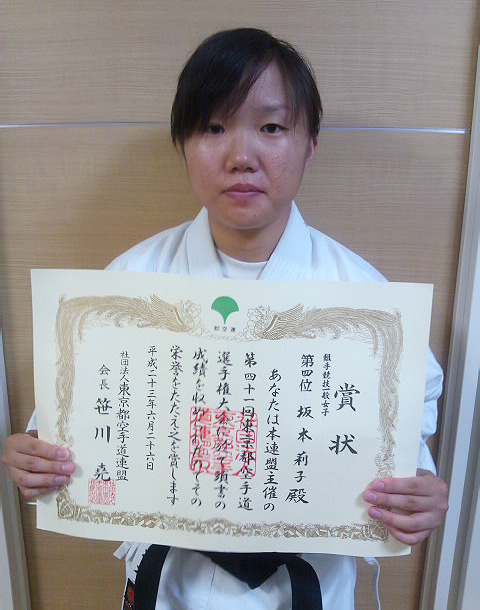 都空連
賞状
組手競技一般女子
第四位 坂本莉子殿
あなたは本連盟主催の
第四十一回東京都空手道
選手権大会に於て頭書の
成績を収められたのでその
栄誉をたたえ之を賞します
平成二十三年六月二十六日
社団法人東京都空手道連盟
会長 笹川堯